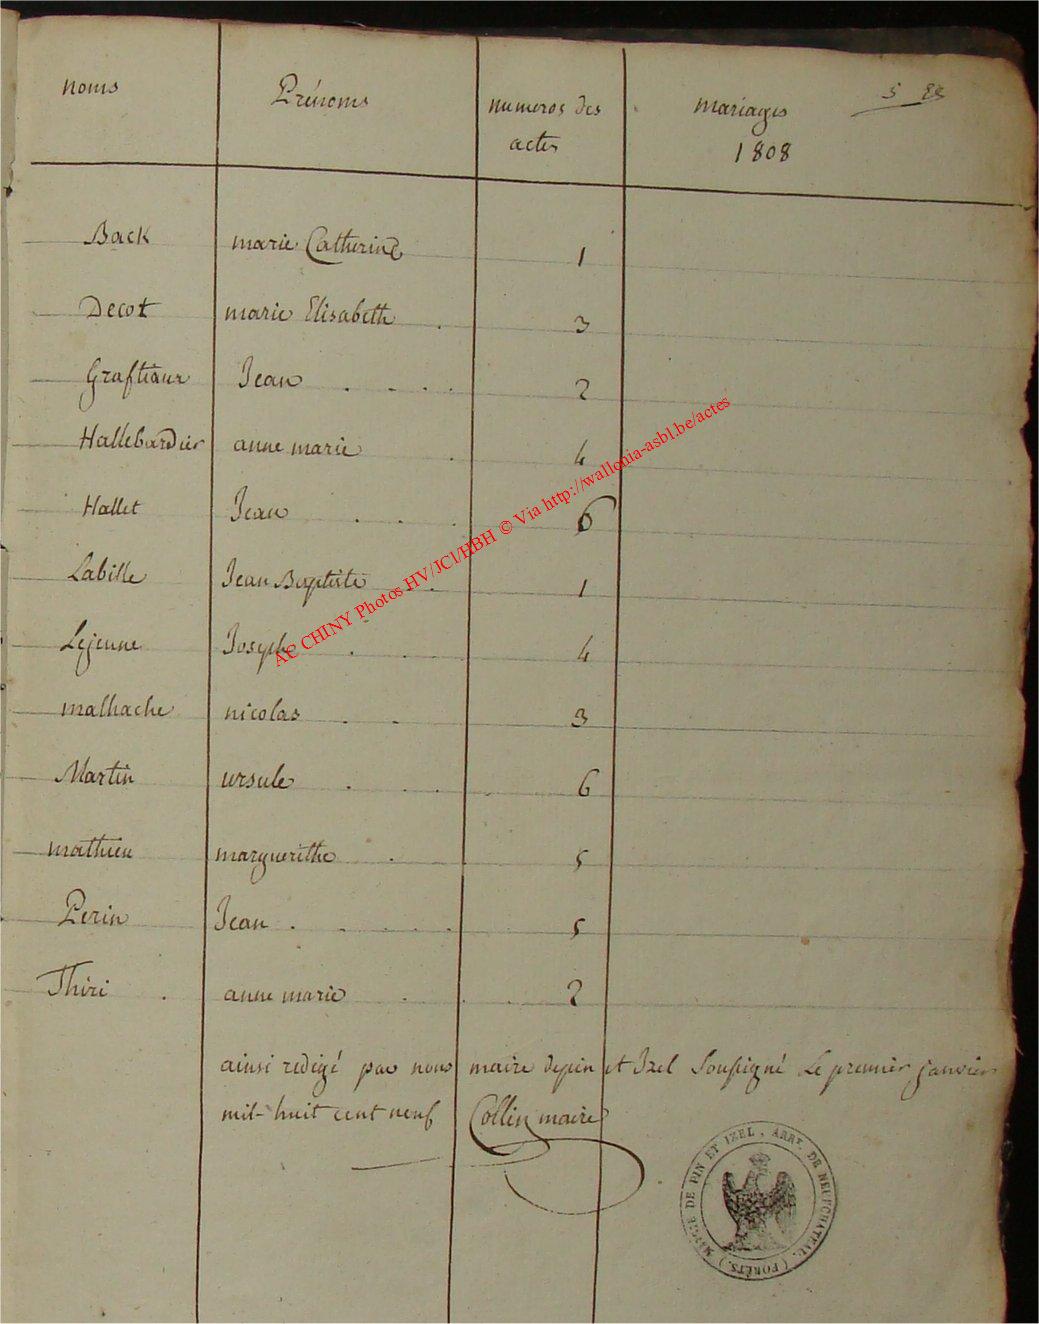 5
noms Prénoms numeros des mariages
actes 1808
Back marie Catherine 1
Decot marie Elisabeth 3
Graftiaux Jean 2
Hallebardier anne marie 4
Hallet Jean 6
Labille Jean Baptiste 1
Lejeune Joseph 4
malhache nicolas 3
Martin ursule 6
mathieu marguerithe 5
Perin Jean 5
Thiri anne marie 2
ainsi redigé par nous maire depin et Izel Soussigné Le premier janvier
mil huit cent neuf Collin maire
MAIRIE DE PIN ET IZEL, ARRT. DE NEUFCHATEAU. (FORÊTS.)
AE CHINY Photos HV/JCl/HBH © Via http://wallonia-asbl.be/actes